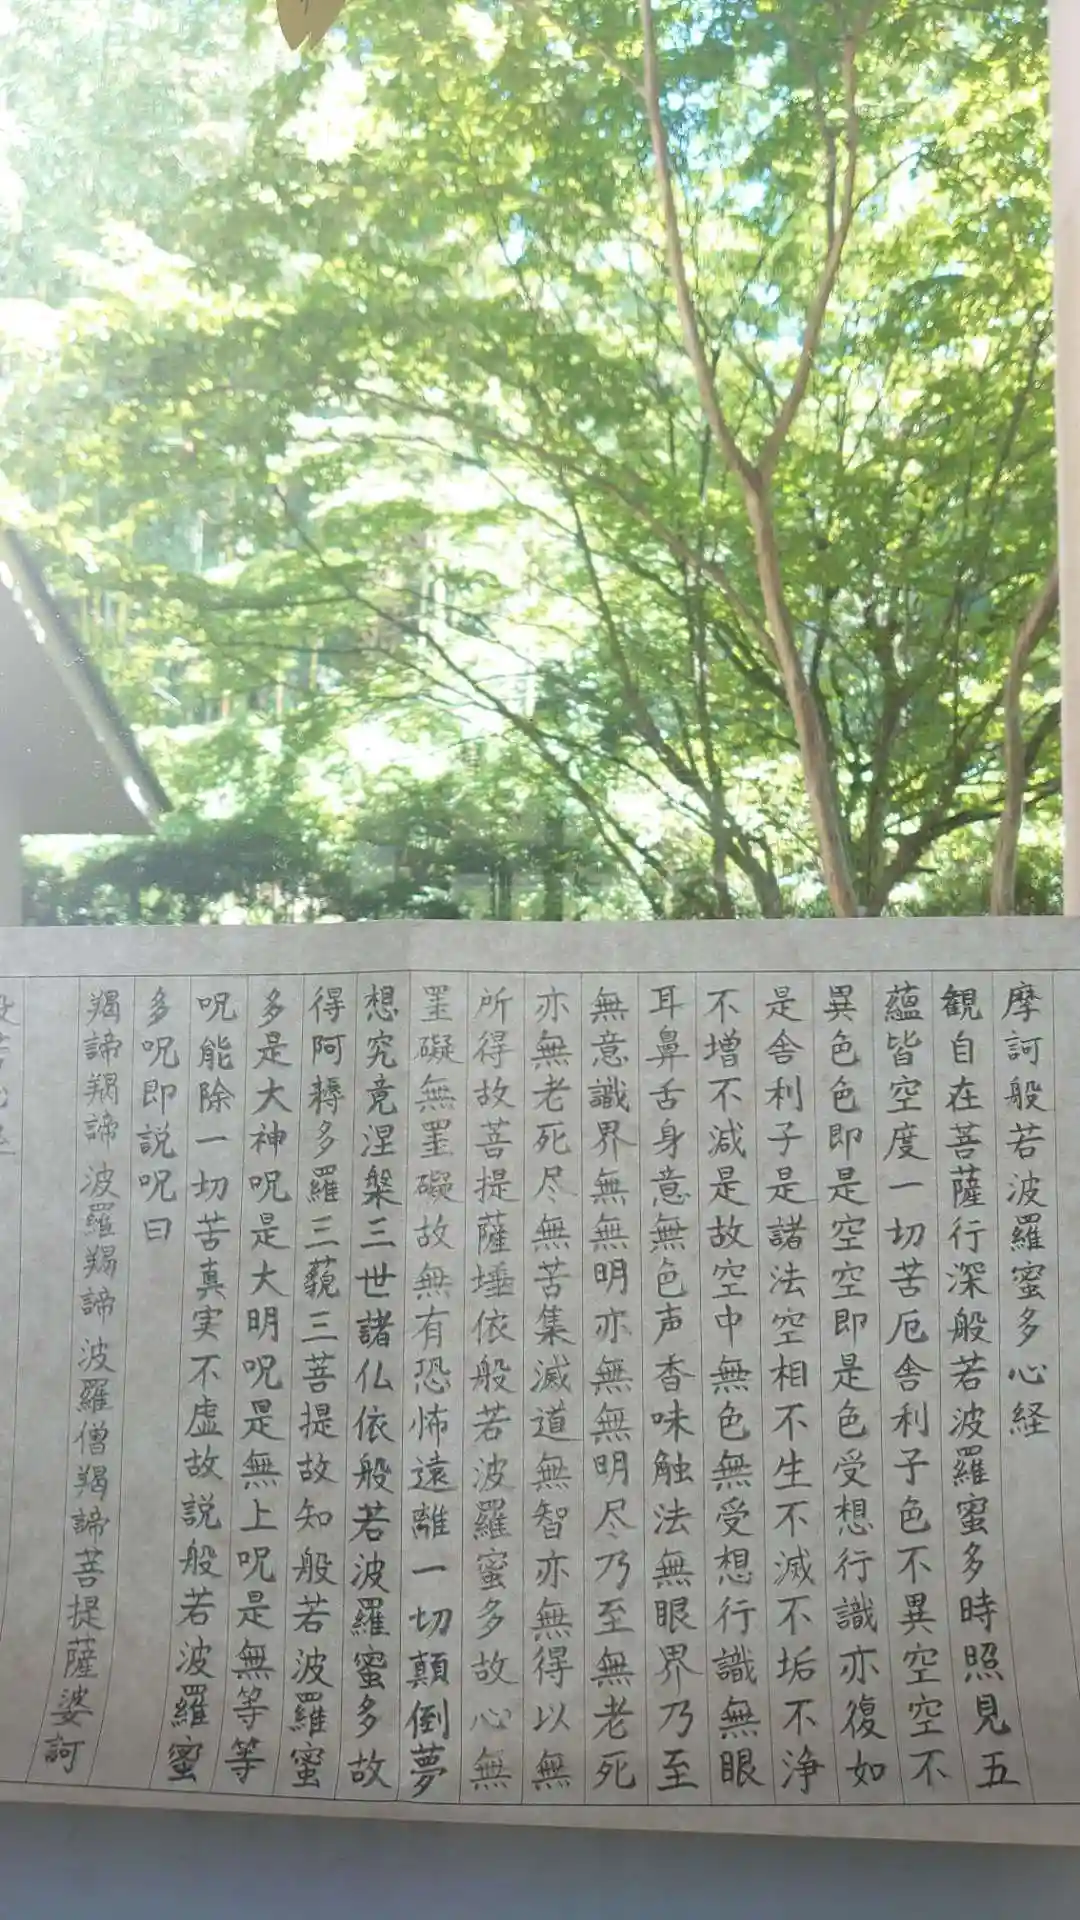 摩訶般若波羅蜜多心経
観自在菩薩行深般若波羅蜜多時照見五
蘊皆空度一切苦厄舎利子色不異空空不
異色色即是空空即是色受想行識亦復如
是舎利子是諸法空相不生不滅不垢不浄
不増不減是故空中無色無受想行識無眼
耳鼻舌身意無色声香味触法無眼界乃至
無意識界無無明亦無無明尽乃至無老死
亦無老死尽無苦集滅道無智亦無得以無
所得故菩提薩埵依般若波羅蜜多故心無
罣礙無罣礙故無有恐怖遠離一切顛倒夢
想究竟涅槃三世諸仏依般若波羅蜜多故
得阿耨多羅三藐三菩提故知般若波羅蜜
多是大神呪是大明呪是無上呪是無等等
呪能除一切苦真実不虚故説般若波羅蜜
多呪即説呪曰
羯諦羯諦波羅羯諦波羅僧羯諦菩提薩婆訶